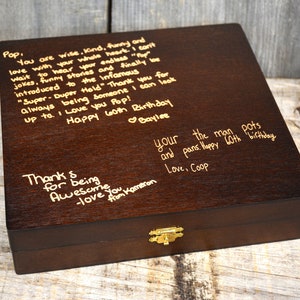 Pop,
You are wise, kind, funny and
love with your whole heart. I can't
wait to hear your endless "for
jokes, funny stories and finally be
introduced to the infamous
"Super-Duper Hold". Thank you for
always being someone I can look
up to. I Love you Pop!
Happy 60th Birthday
♡Baylee
your the man pots
and pans. Happy 60th birthday.
Love, Coop
Thanks
for being
Awesome
-love you
from Kameron